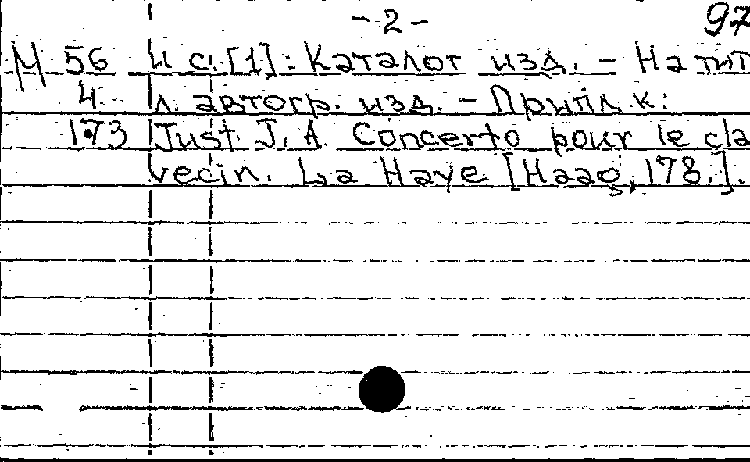 - 2 - 97
М 56 И с. [1]: Каталог изд. - На тит
4 л. автогр. изд. - Припл. к:
173 Just J. A. Concerto pour le cla
vecin. La Haye [Haag, 178.].